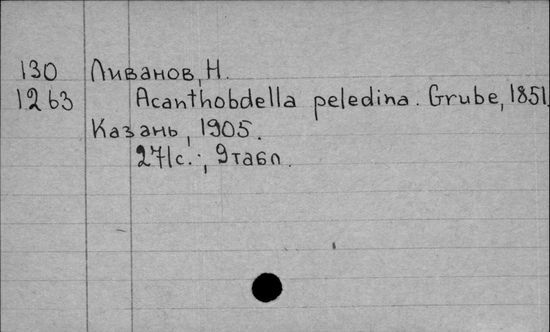 130 Ливанов, Н.
1263 Acanthobdella peledina. Grube, 1851,
Казань, 1905.
271с.; 9табл.